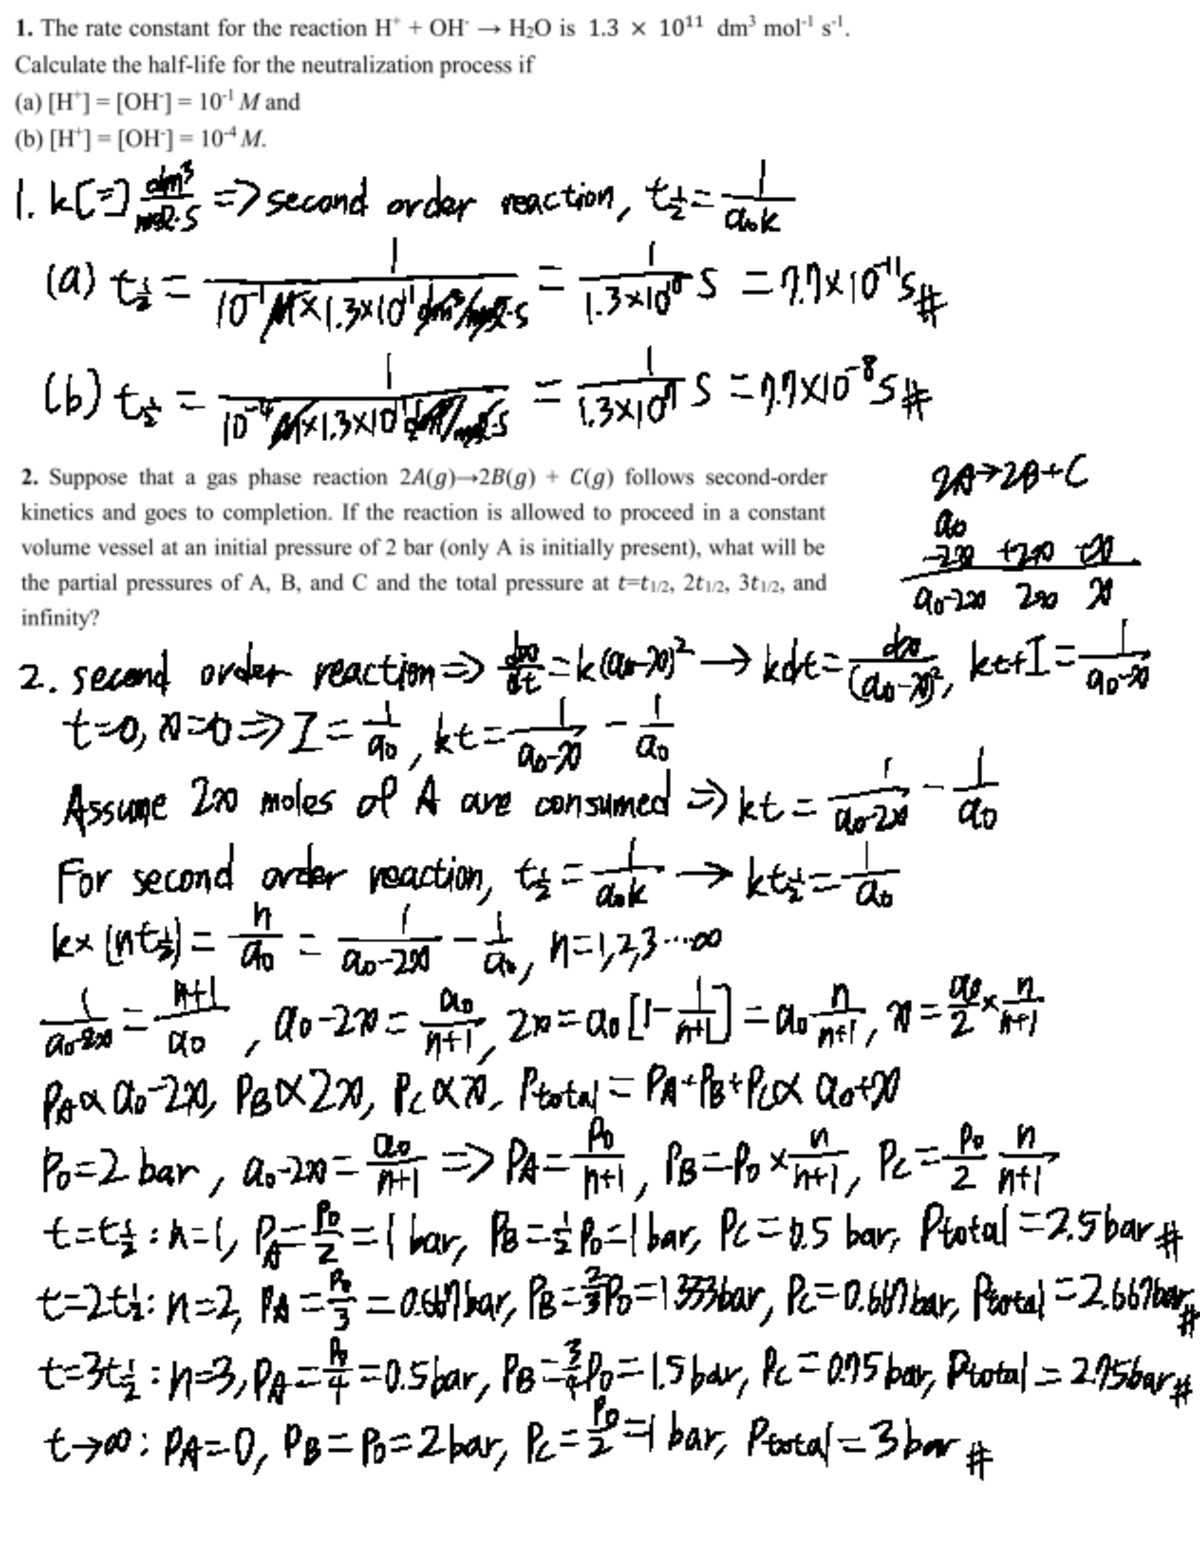 1. The rate constant for the reaction H⁺ + OH⁻ → H₂O is 1.3 × 10¹¹ dm³ mol⁻¹ s⁻¹.
Calculate the half-life for the neutralization process if
(a) [H⁺] = [OH⁻] = 10⁻¹ M and
(b) [H⁺] = [OH⁻] = 10⁻⁴ M.
1. k[=] dm³/mol·s => second order reaction, t½ = 1/a₀k
(a) t½ = 1/(10⁻¹ M × 1.3×10¹¹ dm³/mol·s) = 1/(1.3×10¹⁰) s = 7.7×10⁻¹¹ s #
(b) t½ = 1/(10⁻⁴ M × 1.3×10¹¹ dm³/mol·s) = 1/(1.3×10⁷) s = 7.7×10⁻⁸ s #
2. Suppose that a gas phase reaction 2A(g)→2B(g) + C(g) follows second-order
kinetics and goes to completion. If the reaction is allowed to proceed in a constant
volume vessel at an initial pressure of 2 bar (only A is initially present), what will be
the partial pressures of A, B, and C and the total pressure at t=t₁/₂, 2t₁/₂, 3t₁/₂, and
infinity?
2A→2B+C
a₀
-2x +2x +x
a₀-2x 2x x
2. second order reaction => dx/dt = k(a₀-x)² → kdt = dx/(a₀-x)², kt+I = 1/(a₀-x)
t=0, x=0 => I = 1/a₀, kt = 1/(a₀-x) - 1/a₀
Assume 2x moles of A are consumed => kt = 1/(a₀-2x) - 1/a₀
For second order reaction, t½ = 1/a₀k → kt½ = 1/a₀
k×(nt½) = n/a₀ = 1/(a₀-2x) - 1/a₀, n=1,2,3····∞
1/(a₀-2x) = (n+1)/a₀, a₀-2x = a₀/(n+1), 2x = a₀[1-1/(n+1)] = a₀ n/(n+1), x = a₀/2 × n/(n+1)
PA∝a₀-2x, PB∝2x, Pc∝x, Ptotal = PA+PB+Pc∝ a₀+x
P₀=2 bar, a₀-2x = a₀/(n+1) => PA = P₀/(n+1), PB = P₀ × n/(n+1), Pc = P₀/2 n/(n+1)
t=t½ : n=1, PA = P₀/2 = 1 bar, PB = ½P₀ = 1 bar, Pc = 0.5 bar, Ptotal = 2.5 bar #
t=2t½ : n=2, PA = P₀/3 = 0.667 bar, PB = ⅔P₀ = 1.333 bar, Pc = 0.667 bar, Ptotal = 2.667 bar #
t=3t½ : n=3, PA = P₀/4 = 0.5 bar, PB = ¾P₀ = 1.5 bar, Pc = 0.75 bar, Ptotal = 2.75 bar #
t→∞ : PA=0, PB = P₀ = 2 bar, Pc = P₀/2 = 1 bar, Ptotal = 3 bar #